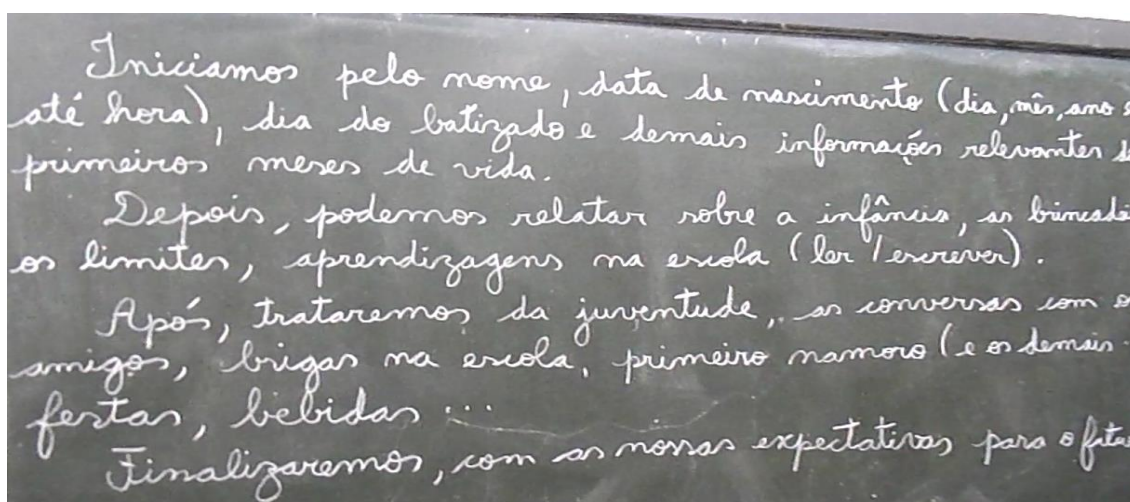 Iniciamos pelo nome, data de nascimento (dia, mês, ano e
até hora), dia do batizado e demais informações relevantes
primeiros meses de vida.
Depois, podemos relatar sobre a infância, as
os limites, aprendizagens na escola (ler / escrever).
Após, trataremos da juventude, as conversas com
amigos, brigas na escola, primeiro namoro (e os demais
festas, bebidas ...
Finalizaremos, com as nossas expectativas para o